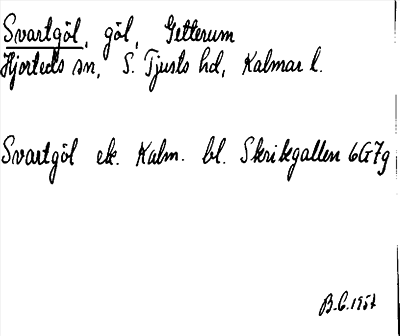 Svartgöl, göl, Getterum
Hjorteds sn, S. Tjusts hd, Kalmar l.
Svartgöl ek. Kalm. bl. Skrikegallen 6G7g
B.G. 1957